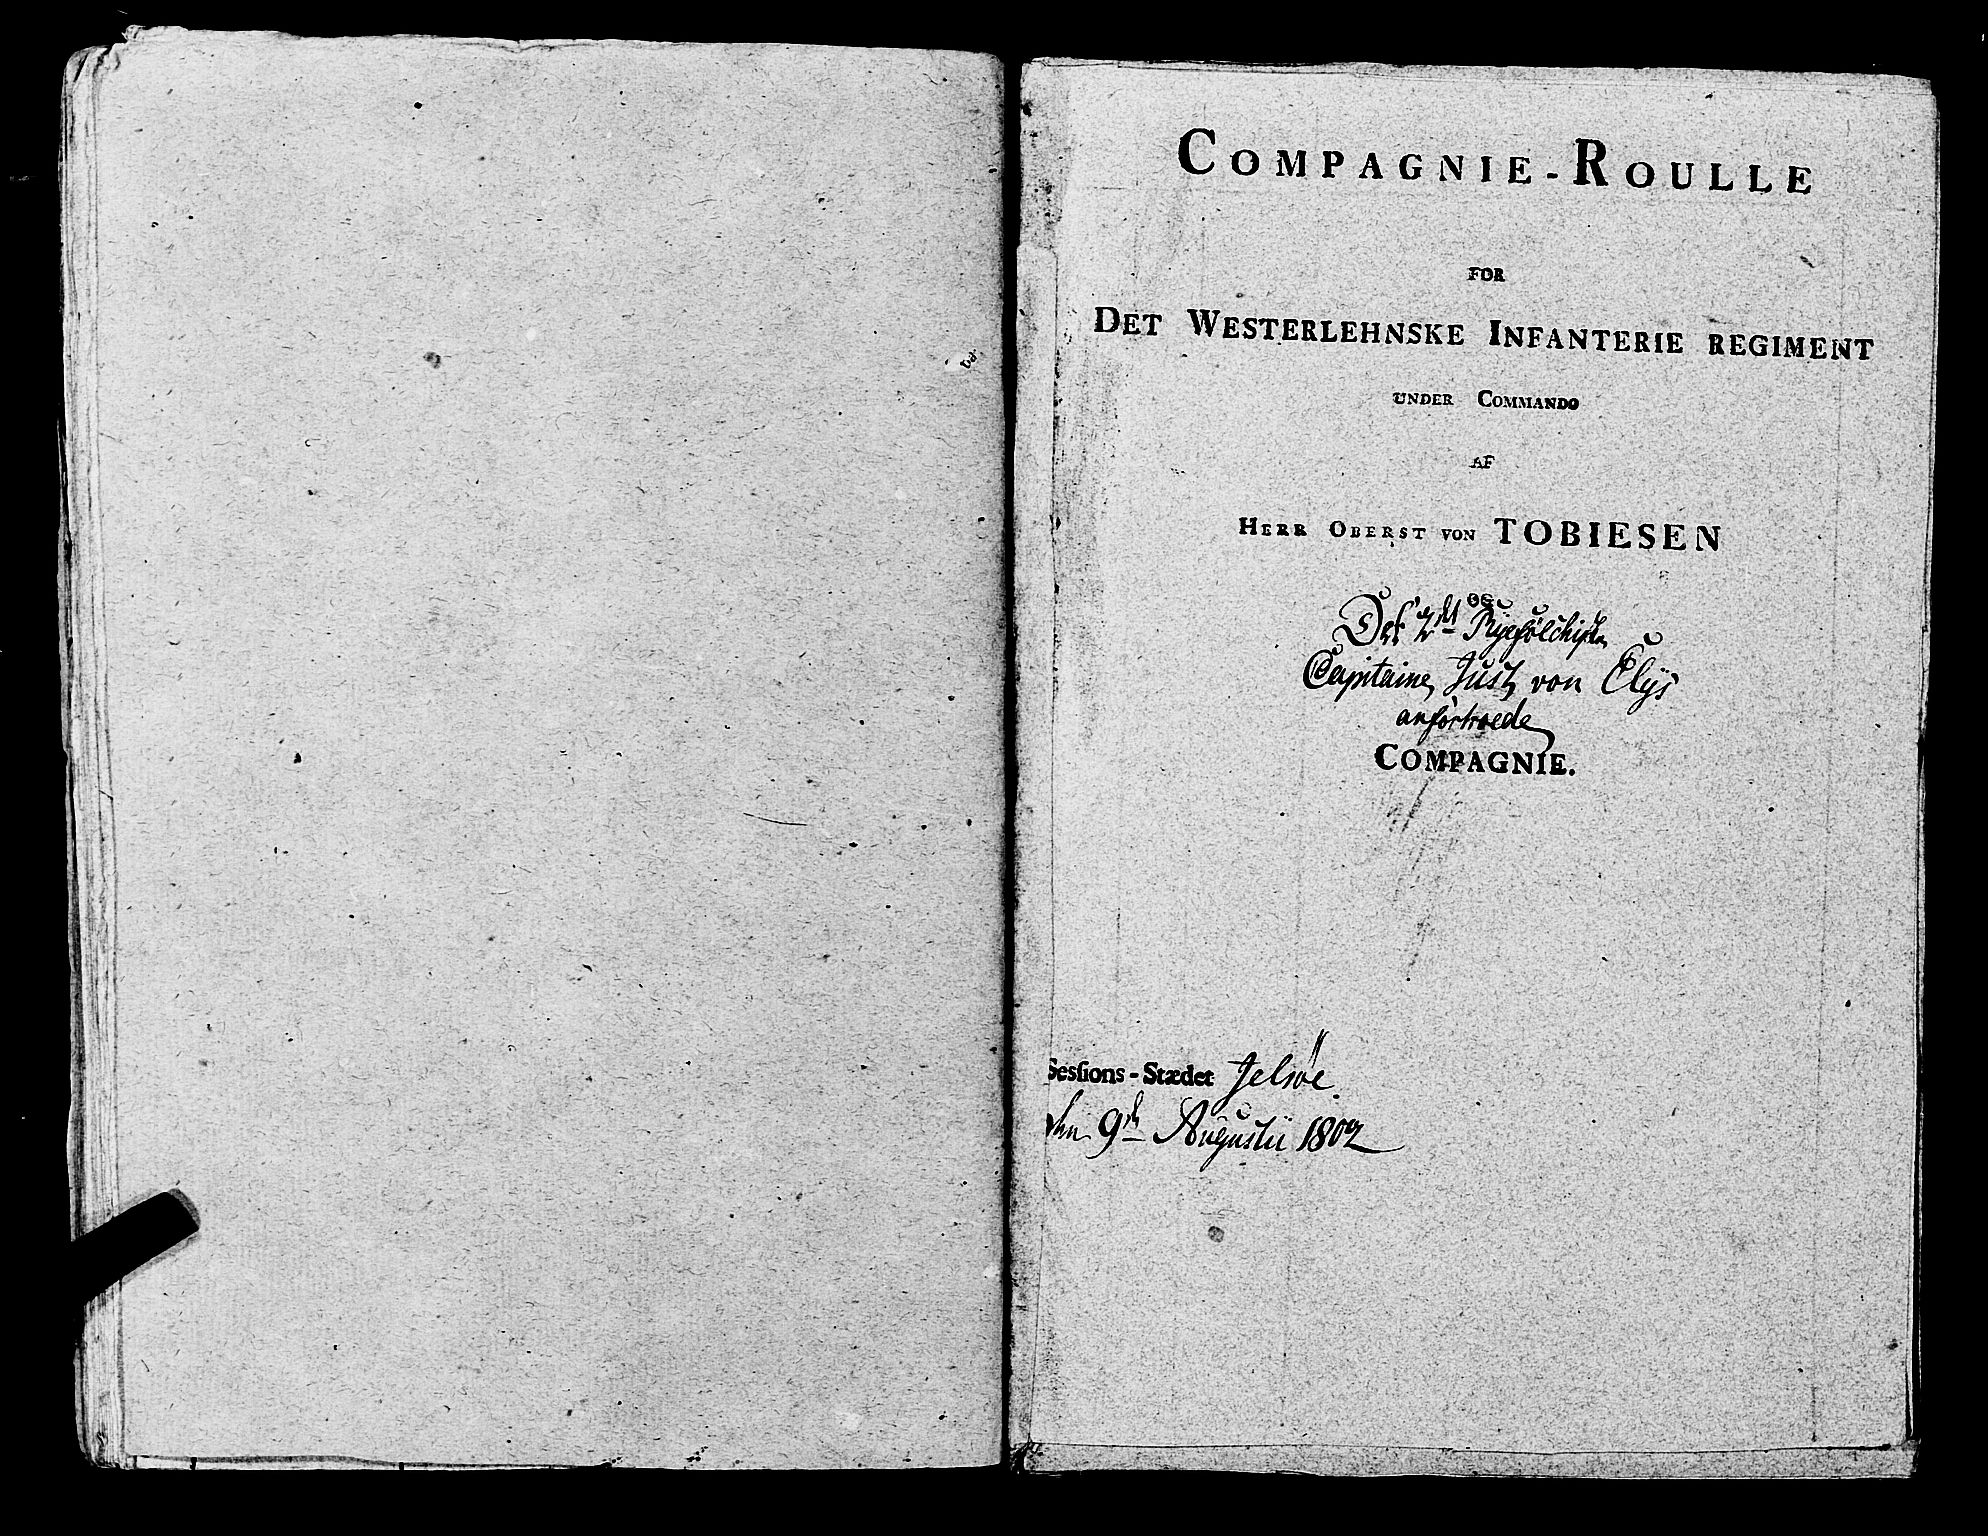 COMPAGNIE-ROULLE
FOR
DET WESTERLEHNSKE INFANTERIE REGIMENT
UNDER COMMANDO
AF
HERR OBERST VON TOBIESEN
Det 2det
Capitaine Just von Elÿs
anfortroede
COMPAGNIE.
Sesſions-Stædet Jelsøe
den 9de Augustii 1802